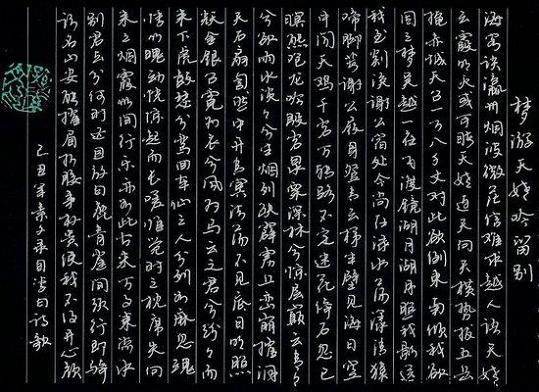 梦游天姥吟留别
海客谈瀛州烟波微茫信难求越人语天姥
云霞明灭或可睹天姥连天向天横势拔五岳
掩赤城天台一万八千丈对此欲倒东南倾我欲
因之梦吴越一夜飞渡镜湖月湖月照我影送
我至剡溪谢公宿处今尚在渌水荡漾清猿
啼脚着谢公屐身登青云梯半壁见海日空
中闻天鸡千岩万转路不定迷花倚石忽已
暝熊咆龙吟殷岩泉栗深林兮惊层巅云青青
兮欲雨水淡淡兮生烟列缺霹雳丘峦崩摧洞
天石扇訇然中开青冥浩荡不见底日月照
耀金银台霓为衣兮风为马云之君兮纷纷而
来下虎鼓瑟兮鸾回车仙之人兮列如麻忽魂
悸以魄动恍惊起而长嗟惟觉时之枕席失向
来之烟霞世间行乐亦如此古来万事东流水
别君去兮何时还且放白鹿青崖间须行即骑
访名山安能摧眉折腰事权贵使我不得开心颜
己丑年